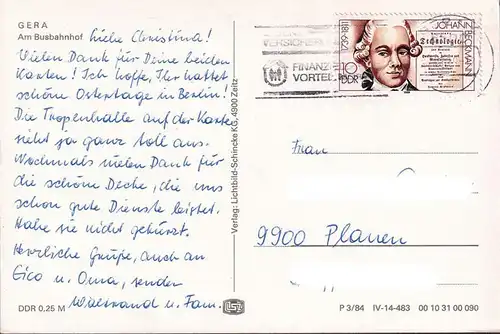 GERA
Am Busbahnhof
Liebe Christina!
Vielen Dank für Deine beiden
Karten! Ich hoffe, Ihr hattet
schöne Ostertage in Berlin!
Die Tropenhalle auf der Karte
sieht ja ganz toll aus.
Nochmals vielen Dank für
die schöne Decke, die uns
schon gute Dienste leistet.
Habe sie nicht gekürzt.
Herzliche Grüße, auch an
Eico u. Oma, senden
Waltraud u. Fam.
DDR 0,25 M
Verlag: Lichtbild-Schincke KG, 4900 Zeitz
FINANZ
VORTEIL
10
DDR
1739-1811
JOHANN
BECKMANN
Technologie
Frau
9900 Plauen
P 3/84 IV-14-483 00 10 31 00 090